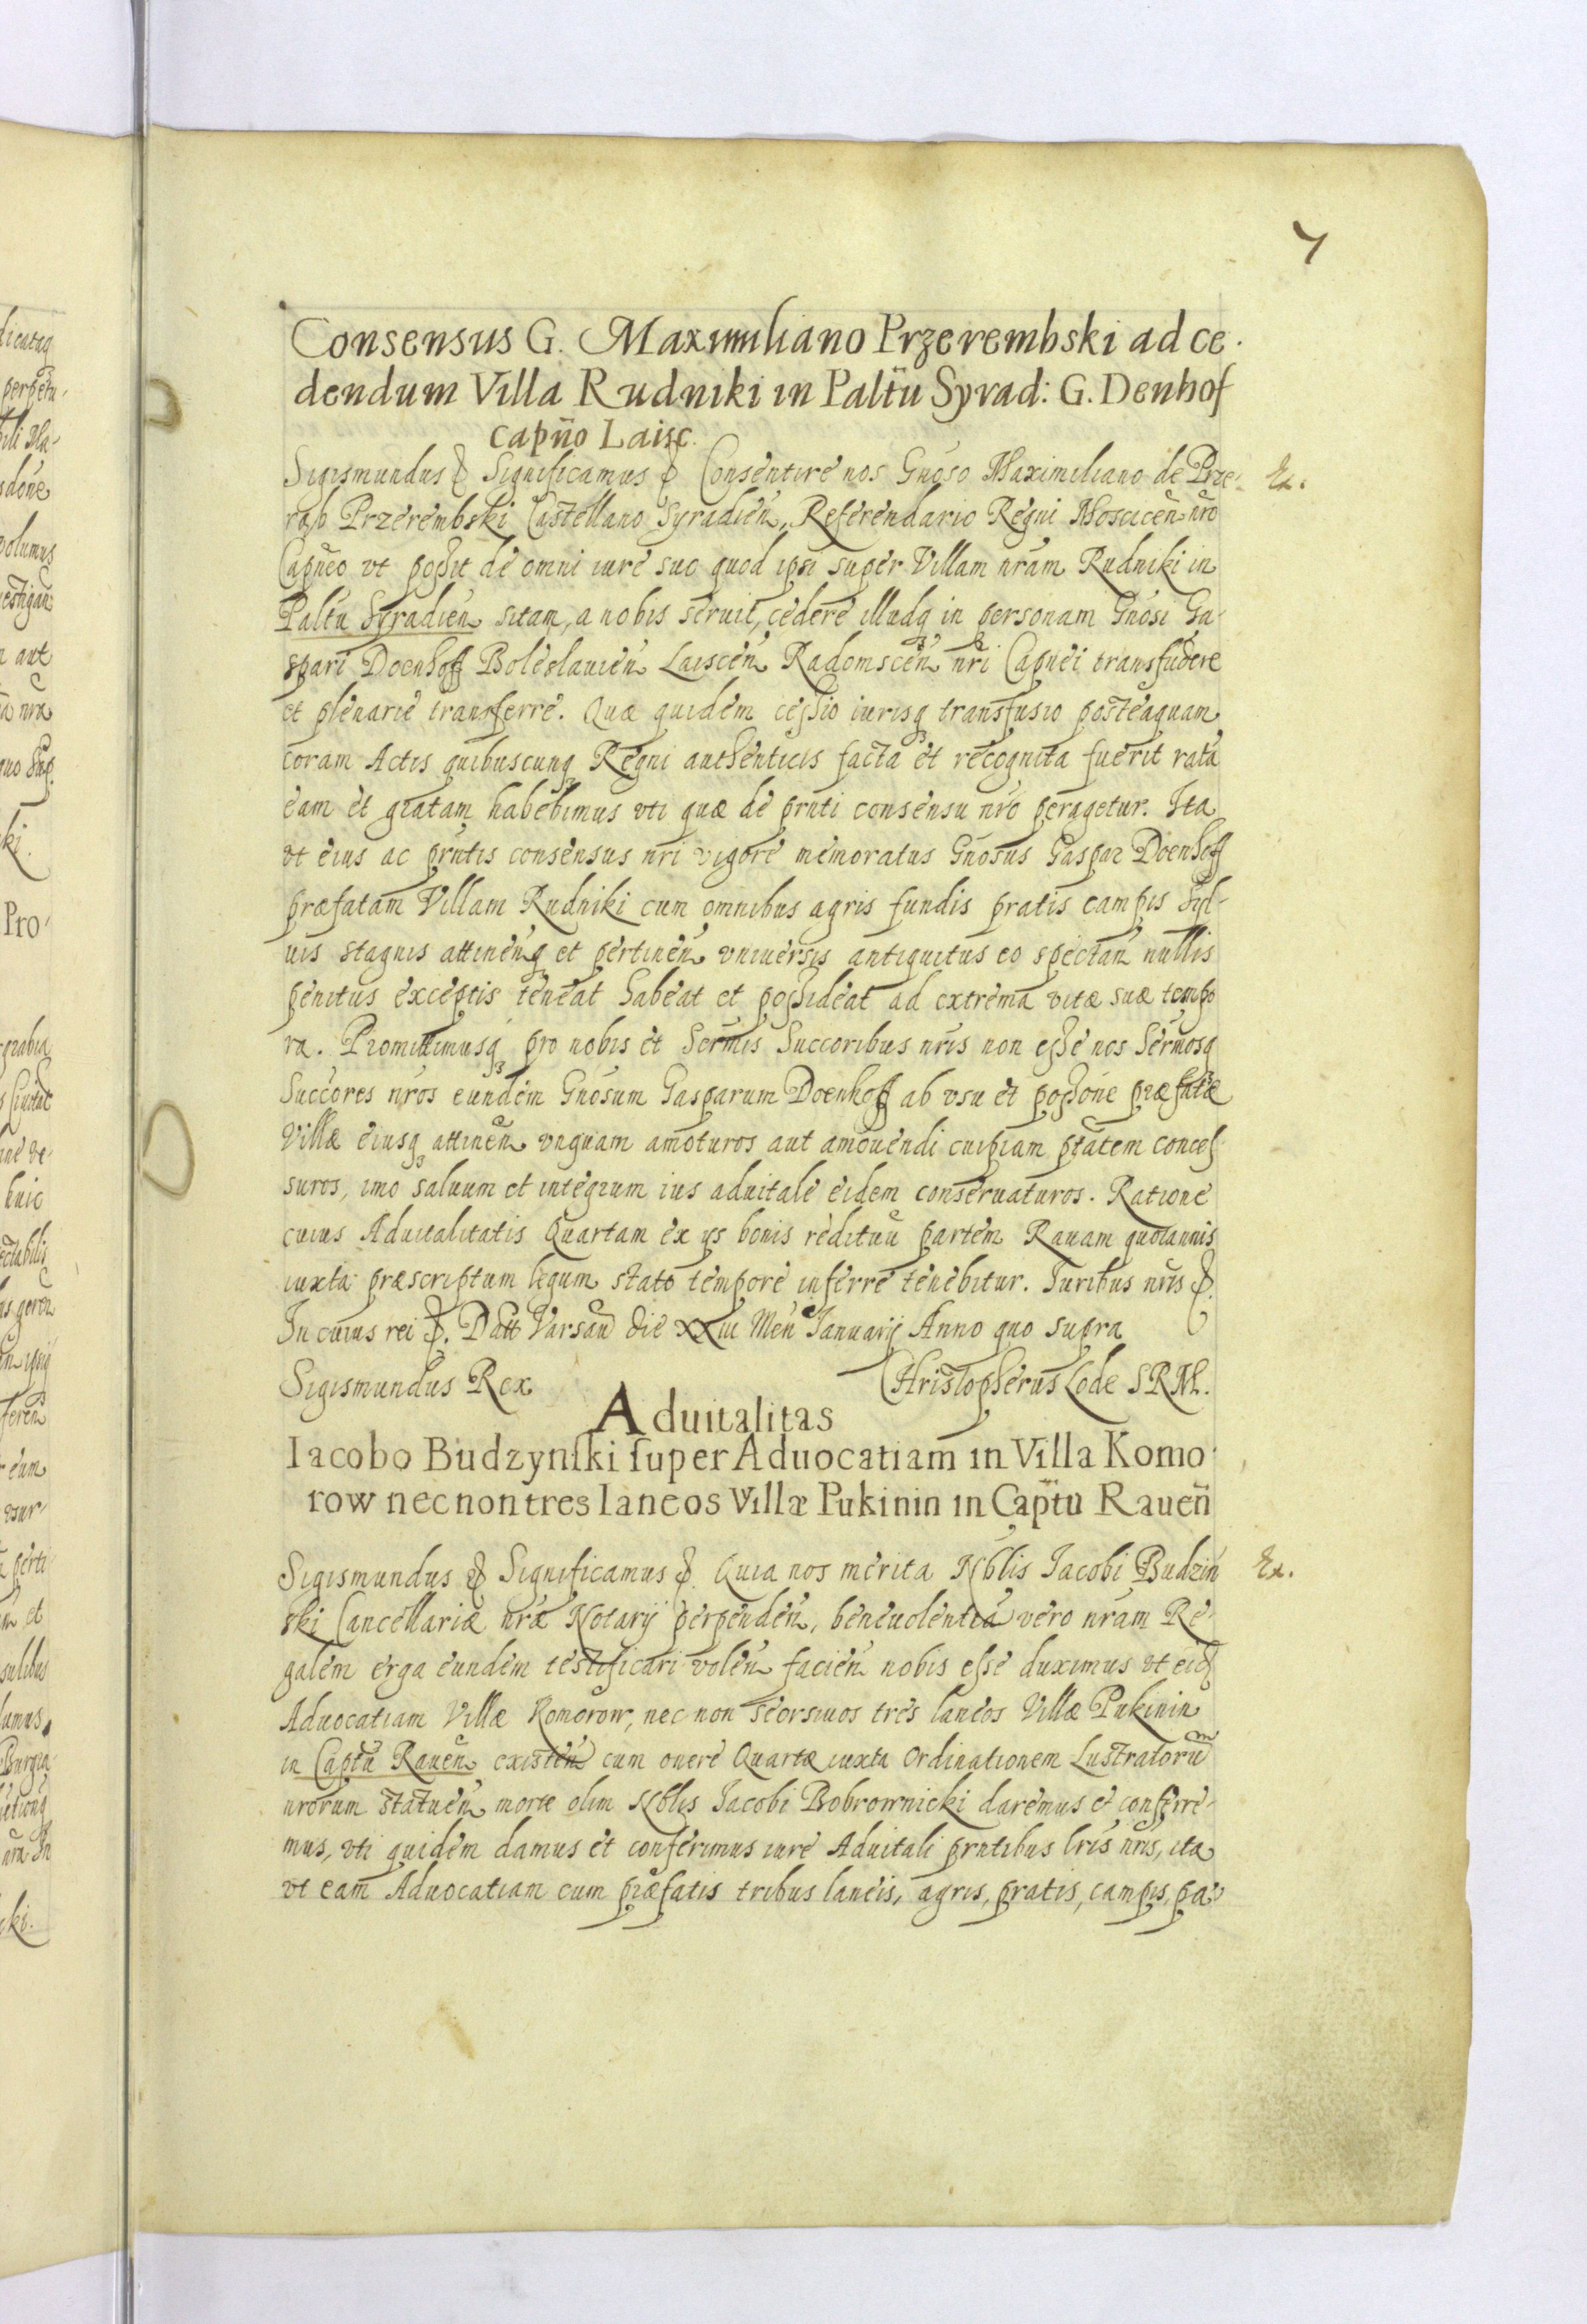 7
Consensus G. Maximiliano Przerembski ad ce-
dendum Villa Rudniki in Paltũ Syrad: G. Denhof
capño Laisc.
Sigismundus & Significamus & Consentire nos Gnoso Maximiliano de Prze- Ex.
rąb Przerembski Castellano Syradien, Referendario Regni Moscicen nro
Capneo vt possit de omni iure suo quod ipsi super Villam nram Rudniki in
Paltu Syradien sitam, a nobis seruit, cedere illudq in personam Gnosi Ga-
spari Doenhoff Boleslauien Laiscen Radomscen nri Capnei transfudere
et plenarie transferre. Quæ quidem cessio iurisq transfusio posteaquam
coram Actis quibuscunq Regni authenticis facta et recognita fuerit rata
eam et gratam habebimus vti quæ de prnti consensu nro peragetur. Ita
vt eius ac prntis consensus nri vigore memoratus Gnosus Gaspar Doenhoff
præfatam Villam Rudniki cum omnibus agris fundis pratis campis Syl-
uis stagnis attinenq et pertinen vniuersis antiquitus eo spectan nullis
penitus exceptis teneat habeat et possideat ad extrema vitæ suæ tempo
ra. Promittimusq pro nobis et Sermis Succoribus nris non esse nos Sermosq
Succores nros eundem Gnosum Gasparum Doenhoff ab vsu et possone præfatæ
Villæ eiusq attinen vnquam amoturos aut amouendi cuipiam ptatem conces-
suros, imo saluum et integrum ius aduitale eidem conseruaturos. Ratione
cuius Aduitalitatis Quartam ex ys bonis redituu partem Rauam quotannis
iuxta præscriptum legum stato tempore inferre tenebitur. Iuribus nris &.
In cuius rei &. Datt Varsau die xxiii Men Ianuarij Anno quo supra
Sigismundus Rex Christopherus Lode SRM.
Aduitalitas
Iacobo Budzynſki ſuper Aduocatiam in Villa Komo-
row nec non tres laneos Villæ Pukinin in Captu Raueñ
Sigismundus & Significamus &. Quia nos merita Nblis Iacobi Budzin Ex.
ski Cancellariæ nræ Notarij perpenden, beneuolentia vero nram Re-
galem erga eundem testificari volen facien nobis esse duximus vt eid
Aduocatiam Villæ Komorow, nec non seorsiuos tres laneos Villæ Pukinin
in Captu Rauen existen cum onere Quartæ iuxta Ordinationem Lustratorum
nrorum statuen morte olim Nblis Iacobi Bobrownicki daremus et conferre-
mus, vti quidem damus et conferimus iure Aduitali prntibus lris nris, ita
vt eam Aduocatiam cum præfatis tribus laneis, agris, pratis, campis, pa-